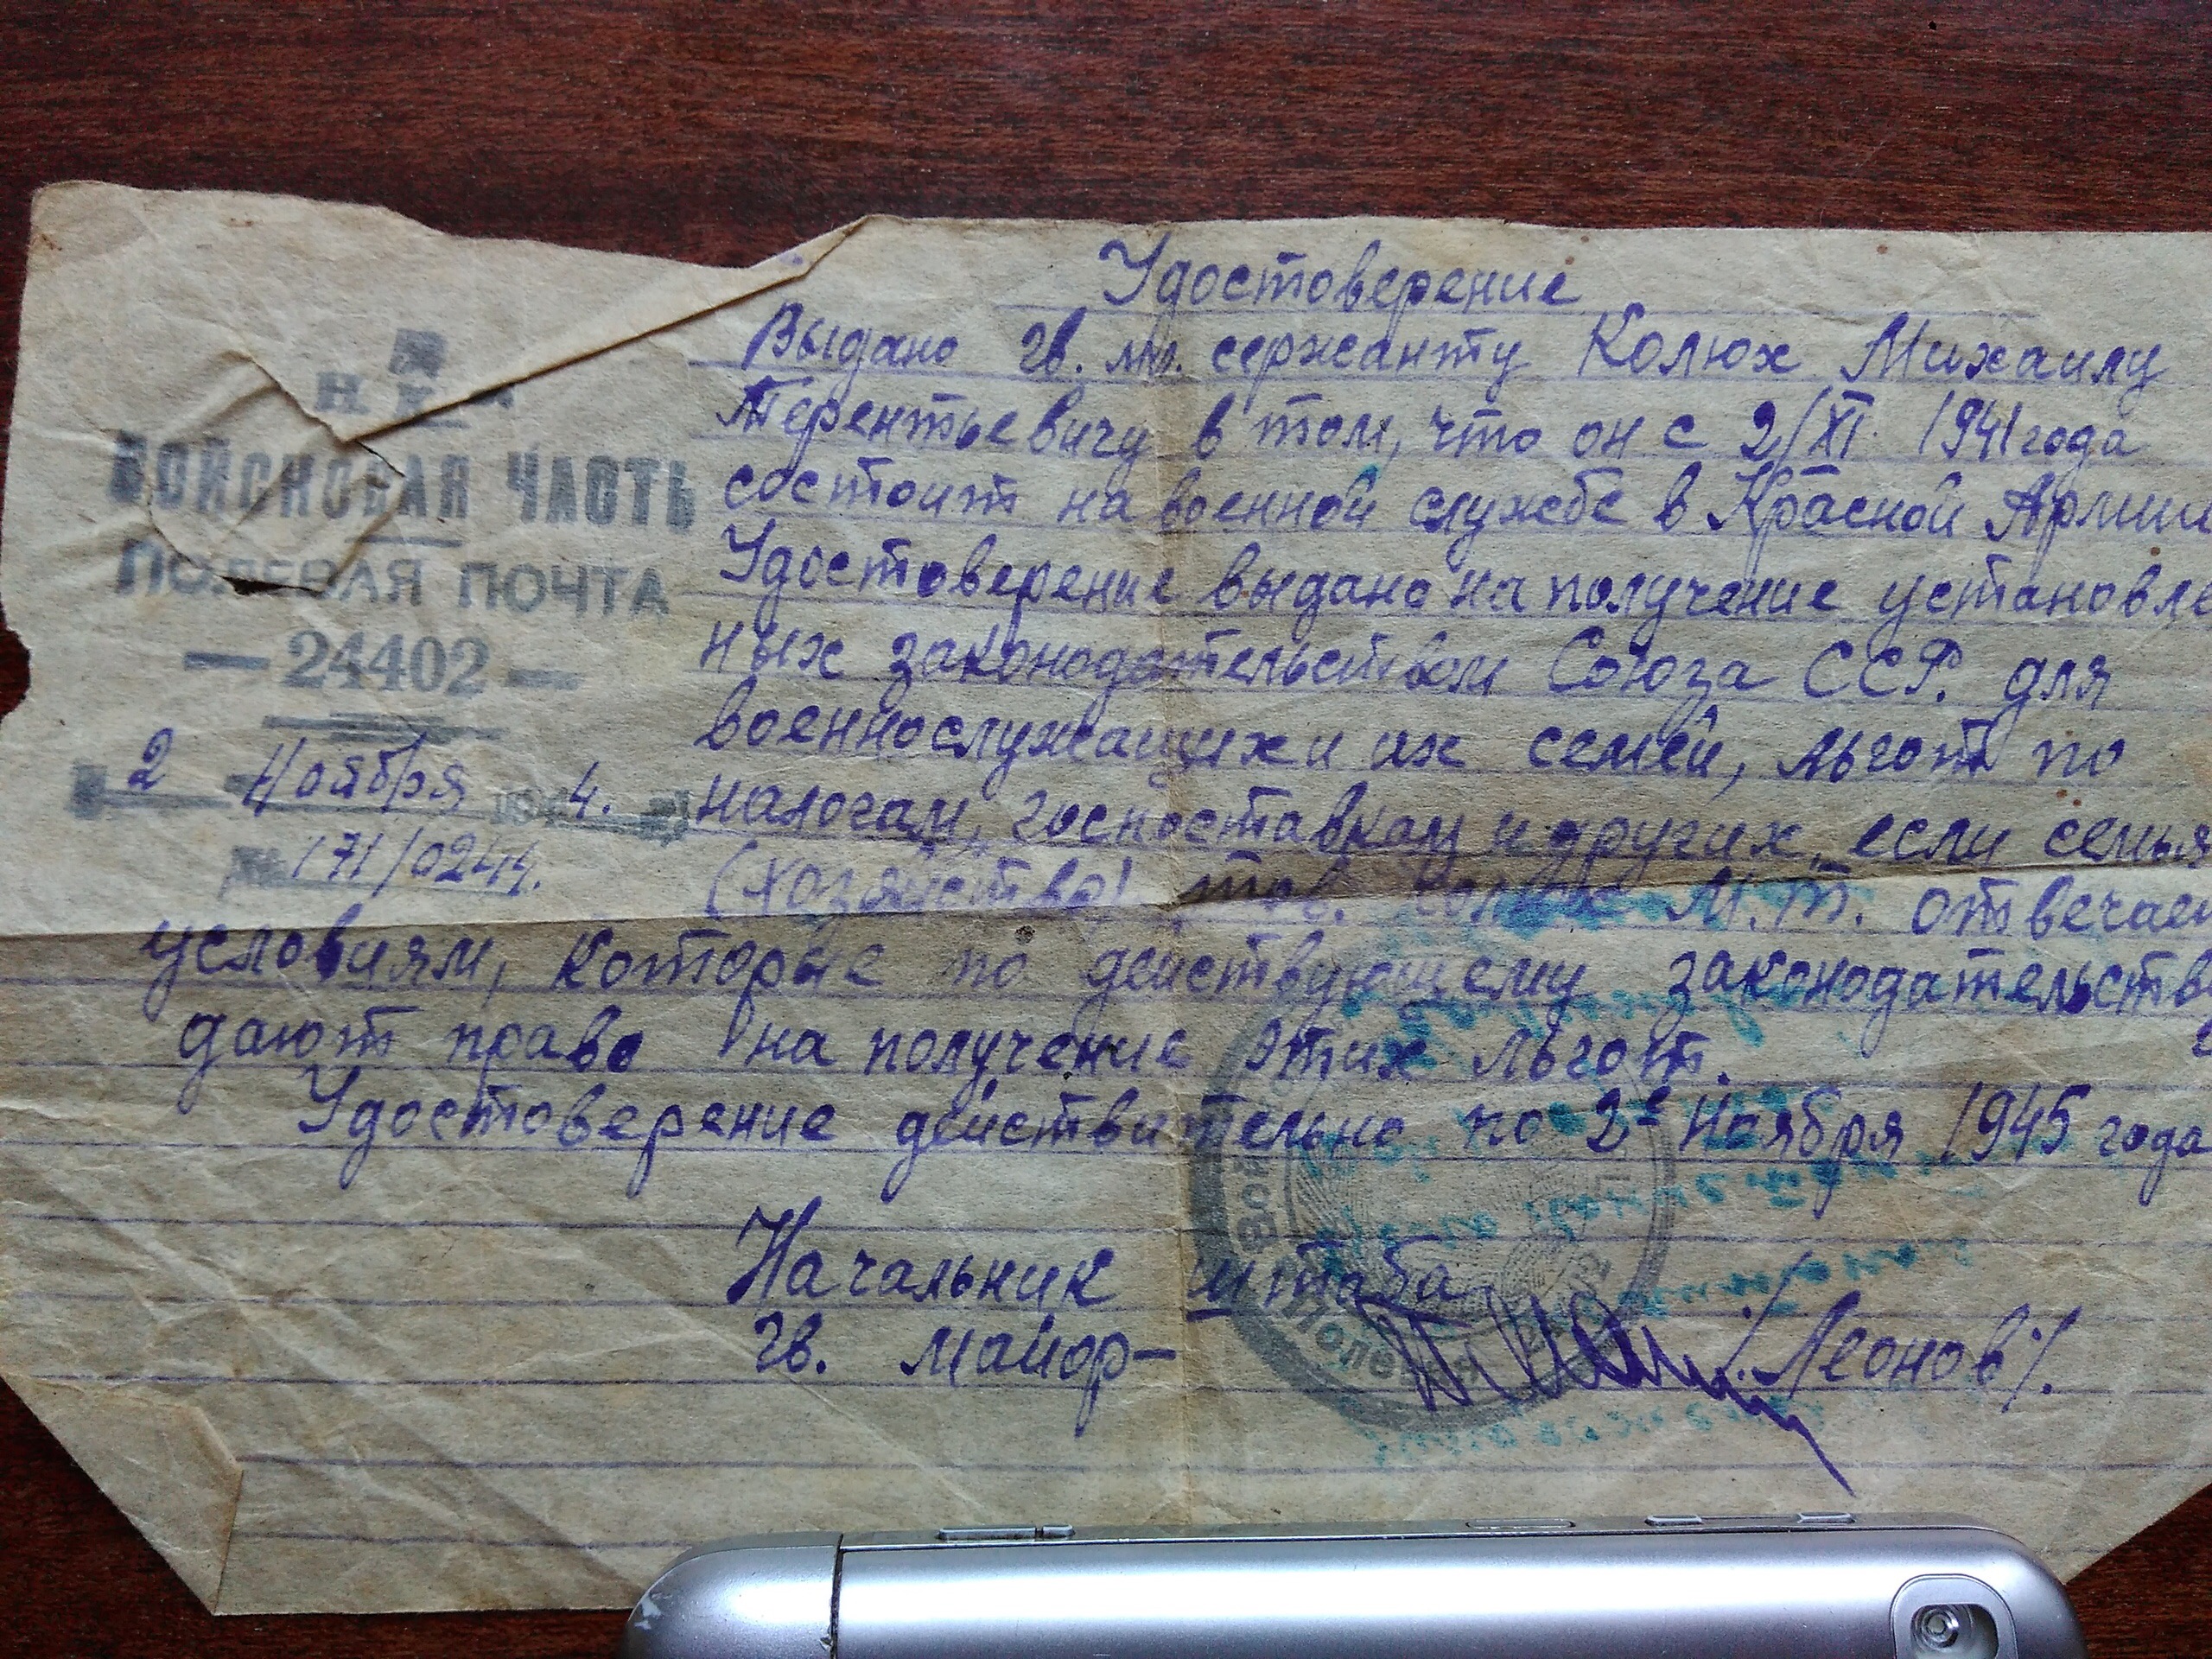 Удостоверение
Выдано гв. мл. сержанту Колюх Михаилу
Терентьевичу в том, что он с 2/XI. 1941 года
состоит на военной службе в Красной Армии
Удостоверение выдано на получение установле
ных законодательством Союза ССР. для
военнослужащих и их семей, льгот по
налогам, госпоставкам и других, если семья
(хозяйство) тов. Колюх М.Т. отвечает
условиям, которые по действующему законодательств
дают право на получение этих льгот.
Удостоверение действительно по 2е Ноября 1945 года
Начальник штаба
гв. майор— /Леонов/.
Н К
ВОЙСКОВАЯ ЧАСТЬ
ПОЛЕВАЯ ПОЧТА
— 24402 —
2 Ноября 4.
№ 171/0244.
Полевая